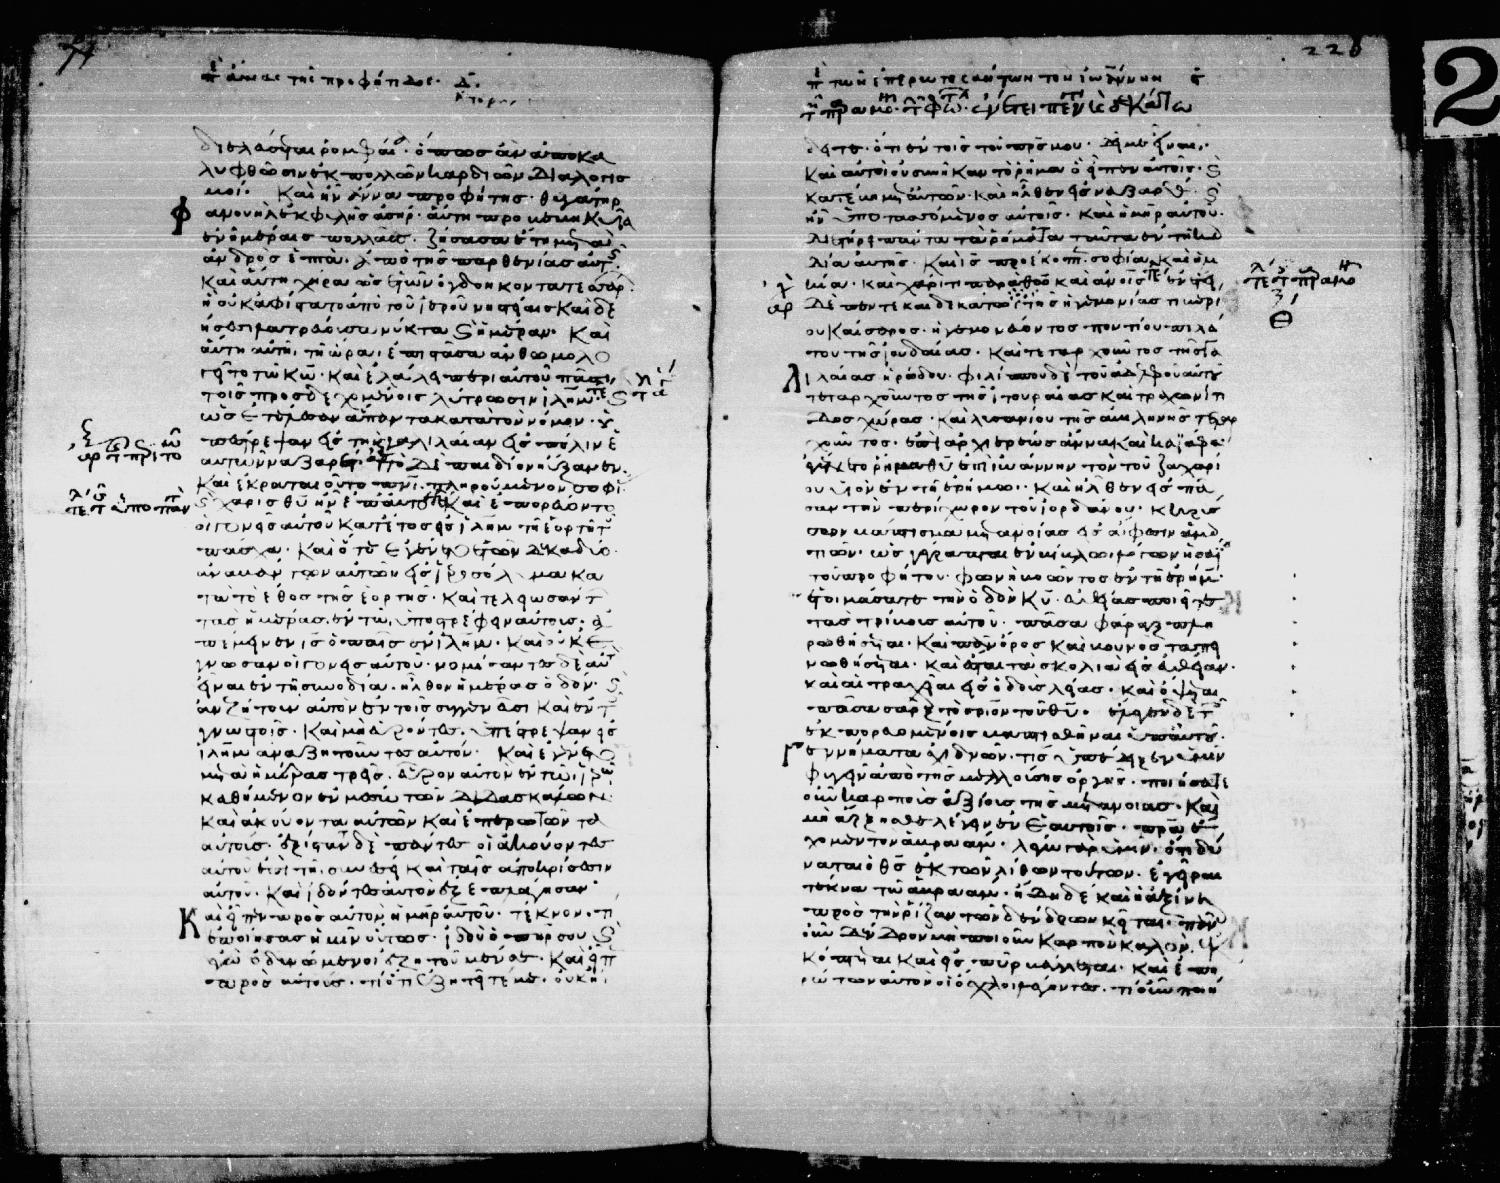 περὶ ἄννας τῆς προφήτιδος
διελεύσεται ῥομφαία· ὅπως ἂν ἀποκα
λυφθῶσιν ἐκ πολλῶν καρδιῶν διαλογισ
μοί· Καὶ ἦν ἄννα προφῆτις· θυγάτηρ
φανουὴλ ἐκ φυλῆς ἀσήρ· αὕτη προβεβηκυῖα
ἐν ἡμέραις πολλαῖς· ζήσασα ἔτη μετὰ
ἀνδρὸς ἑπτὰ· ἀπὸ τῆς παρθενίας αὐτῆς·
καὶ αὕτη χήρα ὡς ἐτῶν ὀγδοηκοντατεσσάρων·
ἣ οὐκ ἀφίστατο ἀπὸ τοῦ ἱεροῦ νηστείαις καὶ δε
ήσεσι λατρεύουσα νύκτα καὶ ἡμέραν· Καὶ
αὕτη αὐτῇ τῇ ὥρα ἐπιστᾶσα ἀνθωμολο
γεῖτο τῶ κω· καὶ ἐλάλει περὶ αὐτοῦ πᾶσι
τοῖς προσδεχομένοις λύτρωσιν ἐν ιλημ·
ὡς ἐτέλεσαν ἅπαντα κατὰ τὸν νόμον· ὑ
πέστρεψαν εἰς τὴν γαλιλαίαν εἰς πόλιν ἑ
αυτῶν ναζαρέτ· Τὸ δὲ παιδίον ηὔξανεν
καὶ ἐκραταιοῦτο πνι· πληρούμενον σοφί
χάρις θυ ἦν ἐπ' αὐτό· Καὶ ἐπορεύοντο
οἱ γονεῖς αὐτοῦ κατ' ἔτος εἰς ιλημ τῇ ἑορτῇ τοῦ
πάσχα· Καὶ ὅτε ἐγένετο ἐτῶν δώδεκα
ἀναβάντων αὐτῶν εἰς ἱεροσόλυμα κα
τὰ τὸ ἔθος τῆς ἑορτῆς· καὶ τελειωσάντων
τὰς ἡμέρας· ἐν τῶ ὑποστρέφειν αὐτούς· ὑ
πέμεινεν ις ὁ παῖς ἐν ιλημ· Καὶ οὐκ ἔ
γνωσαν οἱ γονεῖς αὐτοῦ· νομίσαντες δὲ αὐτὸν
εἶναι ἐν τῇ συνοδία· ἦλθον ἡμέρας ὁδόν·
ἀνεζήτουν αὐτὸν ἐν τοῖς συγγενέσι καὶ ἐν τοῖς
γνωστοῖς· Καὶ μὴ εὑρόντες· ὑπέστρεψαν εἰς
ιλημ ἀναζητοῦντες αὐτόν· Καὶ ἐγένετο
μεθ' ἡμέρας τρεῖς· εὗρον αὐτὸν ἐν τῶ ἱερῶ
καθήμενον ἐν μέσω τῶν διδασκάλων
καὶ ἀκούοντα αὐτῶν καὶ ἐπερωτῶντα
αὐτούς· ἐξίσταντο δὲ πάντες οἱ ἀκούοντες
αὐτοῦ ἐπὶ τῇ συνέσει καὶ ταῖς ἀποκρίσεσιν
αὐτοῦ· Καὶ ἰδόντες αὐτὸν ἐξεπλάγησαν
Καὶ εἶπεν πρὸς αὐτὸν ἡ μηρ αὐτοῦ· τέκνον· τί
ἐποίησας ἡμῖν οὕτως· ἰδοὺ ὁ πηρ σου
ἐγὼ ὀδυνώμενοι ἐζητοῦμέν σε· Καὶ εἶπε
πρὸς αὐτούς· τί ὅτι ἐζητεῖτέ με· οὐκ ᾔ
228
περὶ τῶν ἐπερωτησάντων τὸν ἰωάννην
δειτε· ὅτι ἐν τοῖς τοῦ πρσ μου· δεῖ με εἶναι·
Καὶ αὐτοὶ οὐ συνῆκαν τὸ ῥῆμα ὃ εἶπεν αὐτοῖς·
κατέβη μετ' αὐτῶν· Καὶ ἦλθεν εἰς ναζαρέθ·
ἦν ὑποτασσόμενος αὐτοῖς· Καὶ ἡ μηρ αὐτοῦ
διετήρει πάντα τὰ ῥήματα ταῦτα ἐν τῇ καρ
δία αὐτῆς· Καὶ ις προέκοπτε σοφία καὶ ἡλ
ικία· Καὶ χάριτι παρὰ θω καὶ ἀνοις· ἐν ἔτει
δὲ πεντεκαιδεκάτω τῆς ἡγεμονίας τιβερί
ου καίσαρος· ἡγεμονεύοντος ποντίου πιλά
του τῆς ἰουδαίας· Καὶ τετραρχοῦντος τῆς γα
λιλαίας ἡρώδου· φιλίππου δὲ τοῦ ἀδελφοῦ αὐτοῦ
τετραρχοῦντος τῆς ἰτουραίας καὶ τραχωνίτι
δος χώρας· Καὶ λυσανίου τῆς ἀβιληνῆς τετραρ
χοῦντος· ἐπὶ ἀρχιερέως ἄννα καὶ καϊάφα·
ἐγένετο ῥῆμα θυ ἐπὶ ἰωάννην τὸν τοῦ ζαχαρί
ου υἱὸν ἐν τῇ ἐρήμω· Καὶ ἦλθεν εἰς πᾶ
σαν τὴν περίχωρον τοῦ ἰορδάνου· Κηρύσ
σων βάπτισμα μετανοίας εἰς ἄφεσιν ἁμαρ
τιῶν· ὡς γέγραπται ἐν βίβλω λόγων ἠσαΐου
τοῦ προφήτου· φωνὴ βοῶντος ἐν τῇ ἐρήμω·
ἑτοιμάσατε τὴν ὁδὸν κυ· εὐθείας ποιεῖτε
τὰς τρίβους αὐτοῦ· πᾶσα φάραγξ πλη
ρωθήσεται· Καὶ πᾶν ὄρος καὶ βουνὸς ταπει
νωθήσεται· Καὶ ἔσται τὰ σκολιὰ εἰς εὐθεῖαν·
καὶ αἱ τραχεῖαι εἰς ὁδοὺς λείας· Καὶ ὄψεται
πᾶσα σὰρξ τὸ σριον τοῦ θυ· ἔλεγεν δὲ τοῖς
ἐκπορευομένοις βαπτισθῆναι ὑπ' αὐτοῦ·
Γεννήματα ἐχιδνῶν· τίς ὑπέδειξεν ὑμῖν
φυγεῖν ἀπὸ τῆς μελλούσης ὀργῆς· ποιήσατε
οὖν καρποὺς ἀξίους τῆς μετανοίας· Καὶ
μὴ ἄρξησθε λέγειν ἐν ἑαυτοῖς· πρα ἔ
χομεν τὸν ἀβραάμ· λέγω γὰρ ὑμῖν· ὅτι δύ
ναται ὁ θς ἐκ τῶν λίθων τούτων· ἐγεῖραι
τέκνα τῶ ἀβραάμ· ἤδη δὲ καὶ ἡ ἀξίνη
πρὸς τὴν ῥίζαν τῶν δένδρων κεῖται· πᾶν
οὖν δένδρον μὴ ποιοῦν καρπὸν καλὸν· ἐκ
κόπτεται καὶ εἰς πῦρ βάλλεται· Καὶ ἐπη
ρώτων αὐτὸν οἱ ὄχλοι λέγοντες· τί οὖν ποιή